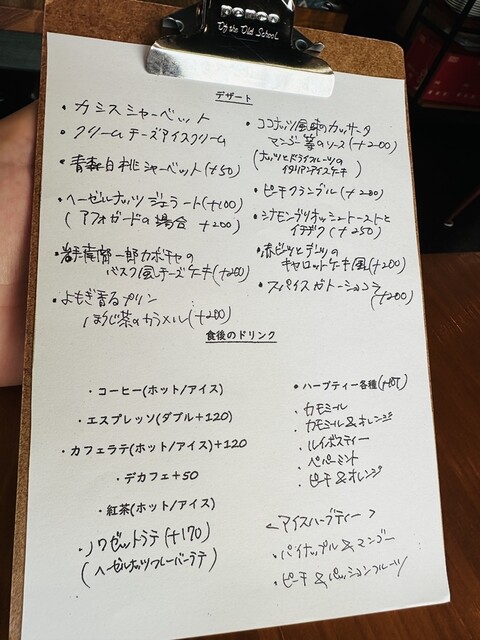 penco
Of the Old School.
デザート
・カシスシャーベット
・クリームチーズアイスクリーム
・青森白桃シャーベット(+50)
・ヘーゼルナッツジェラート(+100)
(アフォガードの場合 +200)
・岩手南部一郎カボチャの
バスク風チーズケーキ(+200)
・よもぎ香るプリン
ほうじ茶のカラメル(+200)
・ココナッツ風味のカッサータ
マンゴー等のソース(+200)
(ナッツとドライフルーツの
イタリアンアイスケーキ)
・ピーチクランブル(+200)
・シナモンブリオッシュトーストと
イチヂク(+250)
・赤ビーツとデーツの
キャロットケーキ風(+200)
・スパイスガトーショコラ
(+200)
食後のドリンク
・コーヒー(ホット/アイス)
・エスプレッソ(ダブル+120)
・カフェラテ(ホット/アイス)+120
・デカフェ+50
・紅茶(ホット/アイス)
・ノワゼットラテ(+170)
(ヘーゼルナッツフレーバーラテ)
●ハーブティー各種(HOT)
・カモミール
・カモミール&オレンジ
・ルイボスティー
・ペパーミント
・ピーチ&オレンジ
<アイスハーブティー>
・パイナップル&マンゴー
・ピーチ&パッションフルーツ